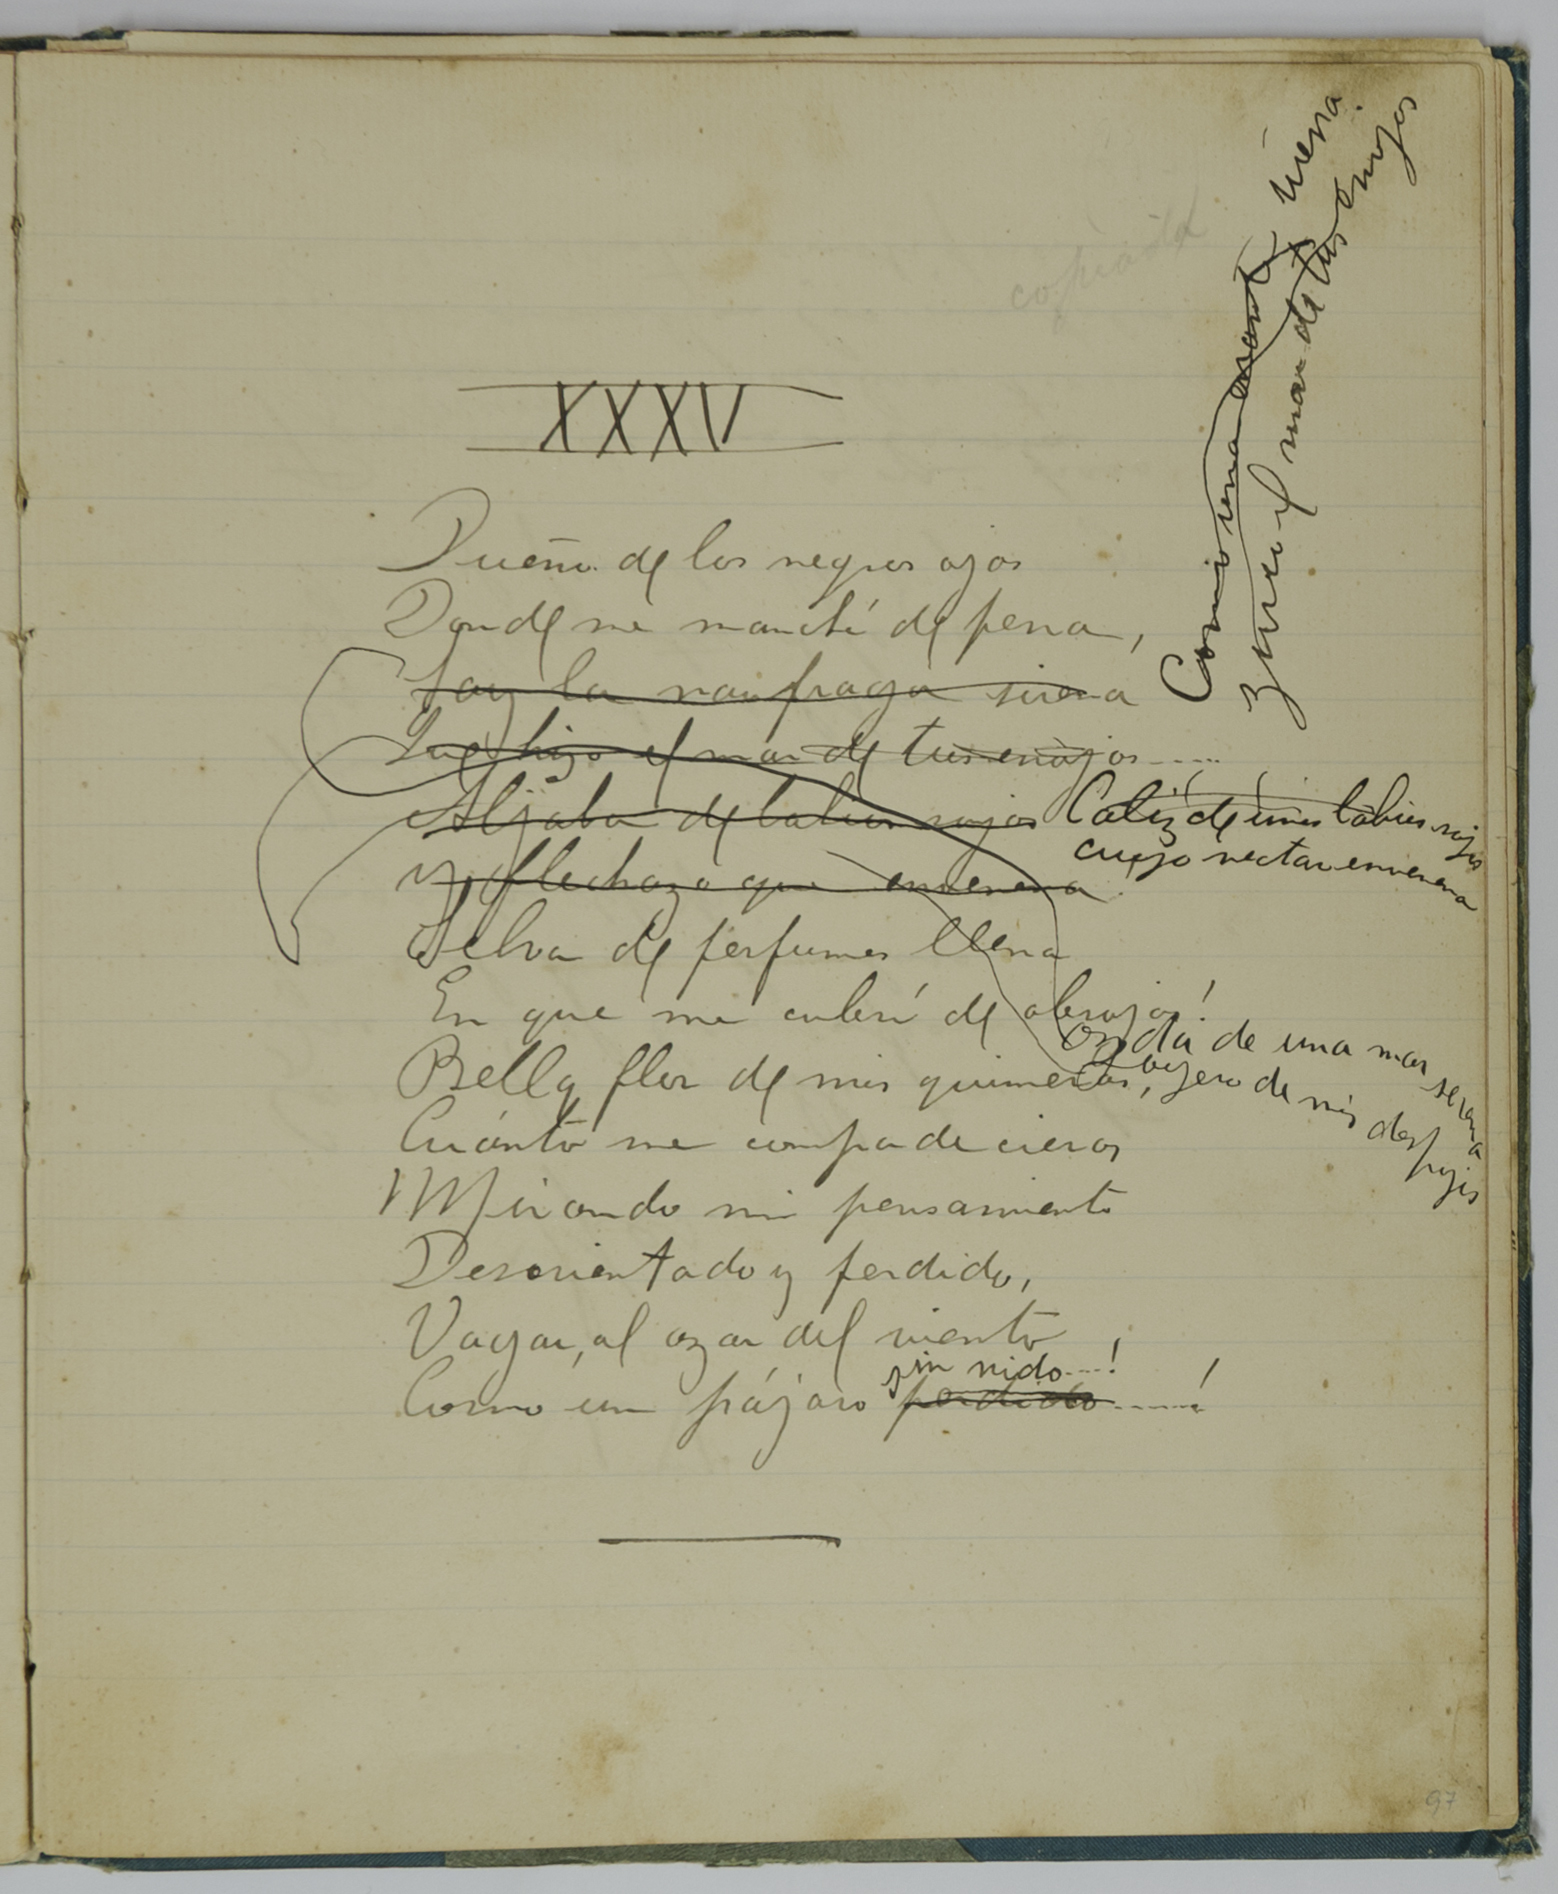 copiada
Como una sirena
Zurce el mar de tus enojos
XXXV
Dueño de los negros ojos
Donde me manché de pena,
Soy la naufraga sirena
Que hizo el mar de tus enojos.....
Aljaba de labios rojos Caliz de unos labios rojos
cuyo nectar envenena
y flechazo que envenena
Selva de perfumes llena
En que me cubrí de abrojos!
Onda de una mar serena
Bella flor de mis quimeras, de mis despojos
Cuánto me compadecieras
Mirando mi pensamiento
Desorientado y perdido,
Vagar, al azar del viento
sin nido...!
Como un pájaro perdido.....!
97